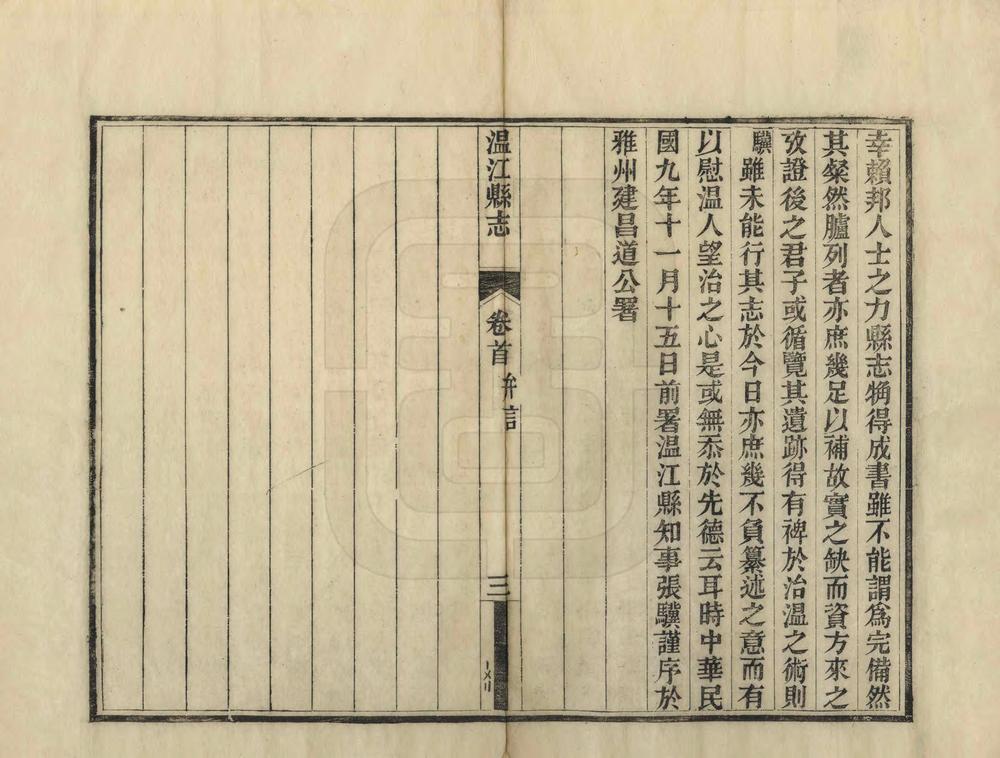 幸賴邦人士之力縣志觕得成書雖不能謂爲完備然
其粲然臚列者亦庶幾足以補故實之缺而資方來之
攷證後之君子或循覽其遺跡得有裨於治溫之術則
驥雖未能行其志於今日亦庶幾不負纂述之意而有
以慰溫人望治之心是或無忝於先德云耳時中華民
國九年十一月十五日前署溫江縣知事張驥謹序於
雅州建昌道公署
溫江縣志
卷首
弁言
三